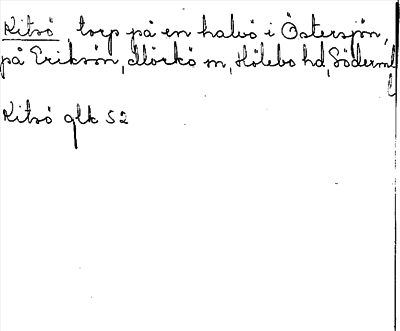 Kitsö, torp på en halvö i Östersjön,
på Eriksön, Mörkö sn, Hölebo hd, Söderml
l
Kitsö glk 52